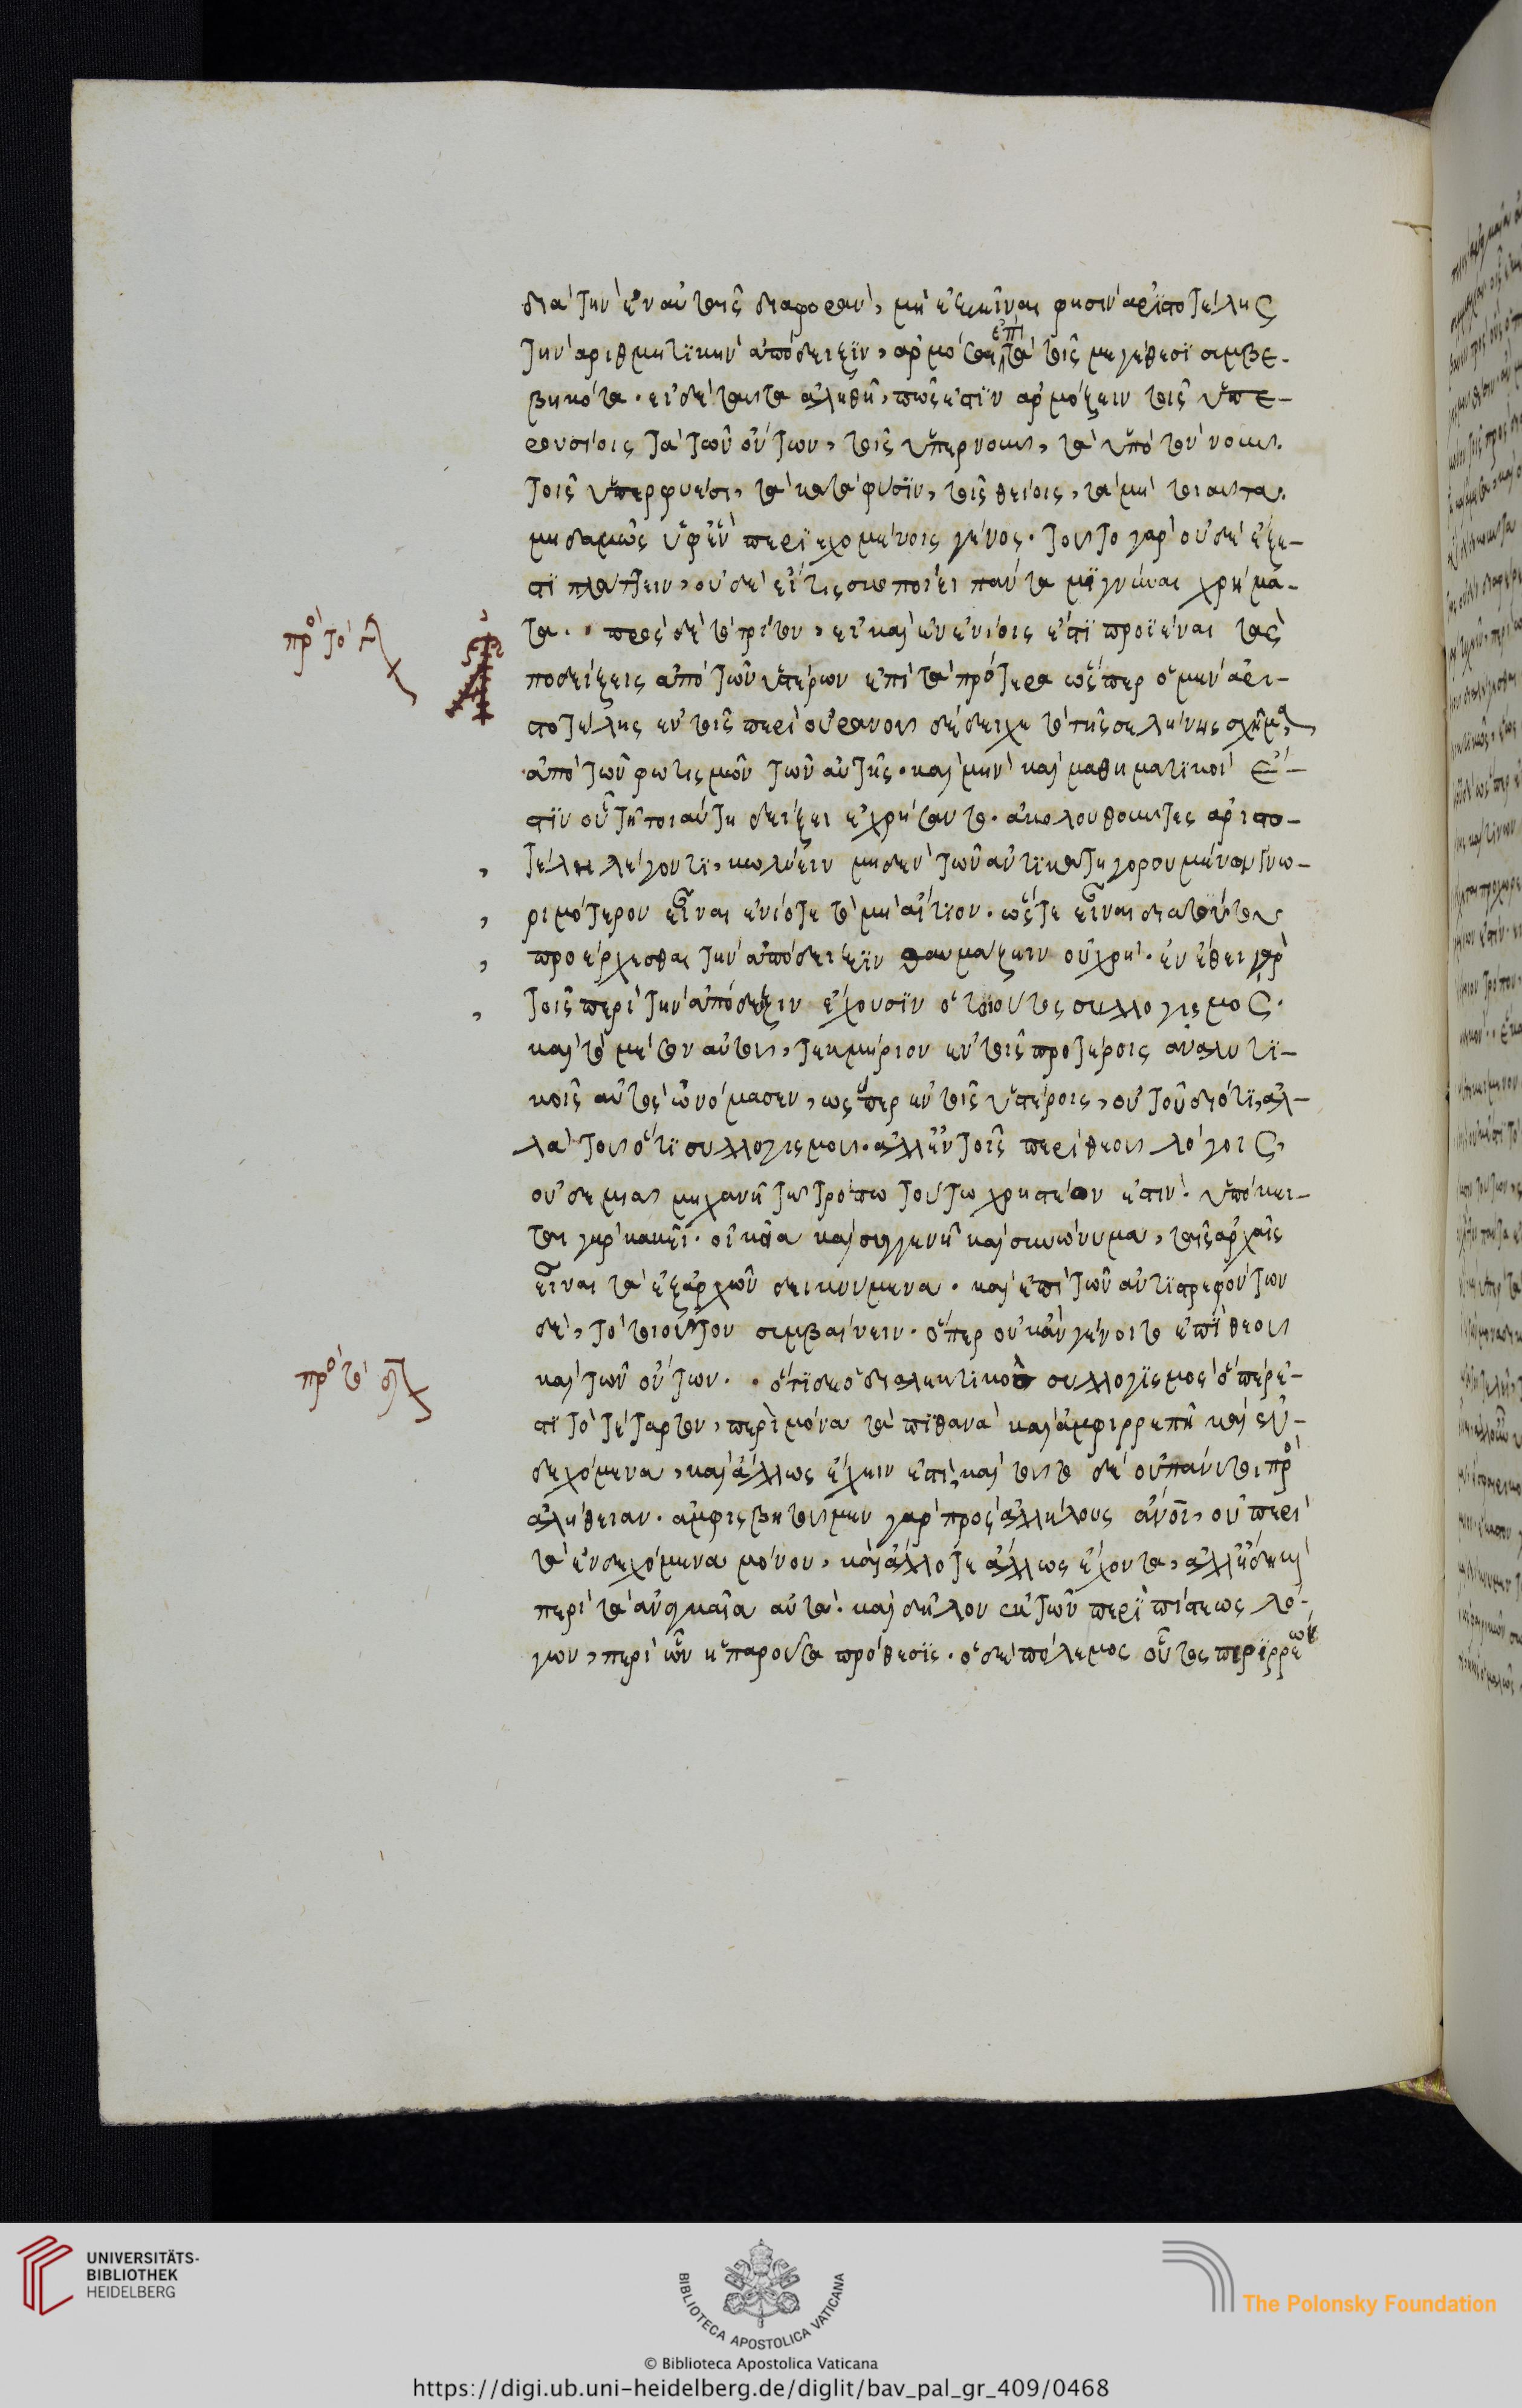 διὰ τὴν ἐν αὐτοῖς διαφορὰν, μὴ ἐξεῖναι φησὶν ἀριστοτέλης
τὴν ἀριθμητικὴν ἀπόδειξιν, ἁρμόσαι ἐπὶ τὰ τοῖς μεγέθεσι συμβε-
βηκότα. εἰ δὲ ταῦτα ἀληθῆ, πῶς ἐστὶν ἁρμόζειν τοῖς ὑπε-
ρουσίοις τὰ τῶν ὄντων, τοῖς ὑπὲρ νοῦν, τὰ ὑπὸ τὸν νοῦν.
τοῖς ὑπερφυέσι, τὰ κατὰ φύσιν, τοῖς θείοις, τὰ μὴ τοιαῦτα.
μηδαμῶς ὑφ' ἓν περιεχομένοις γένος. τοῦτο γὰρ οὐδὲ ἔξε-
στι πλάττειν, οὐδὲ εἴ τις σοι ποιεῖ πάντα μιγνύναι χρήμα-
τα. πρὸς δὲ τὸ τρίτον, εἰ καὶ ἐν ἐνίοις ἐστὶ προϊέναι τὰς
πρὸς τὸ γ
Ἀ
ποδείξεις ἀπὸ τῶν ὑστέρων ἐπὶ τὰ πρότερα ὥσπερ ὁ μὲν ἀρι-
στοτέλης ἐν τοῖς περὶ οὐρανοῦ δέδειχε τὸ τῆς σελήνης σχῆμα
ἀπὸ τῶν φωτισμῶν τῶν αὐτῆς. καὶ μὴν καὶ μαθηματικοὶ ἔ-
στιν οὗ τῇ τοιαύτῃ δείξει ἐχρήσαντο. ἀκολουθοῦντες ἀριστο-
τέλει λέγοντι, κωλύειν μηδὲν τῶν ἀντικατηγορουμένων γνω-
ριμότερον εἶναι ἐνίοτε τὸ μὴ αἴτιον. ὥστε εἶναι διὰ τούτου
προέρχεσθαι τὴν ἀπόδειξιν θαυμάζειν οὐ χρή. ἐν ἔθει γὰρ
τοῖς περὶ τὴν ἀπόδειξιν ἔχουσιν ὁ τοιοῦτος συλλογισμός.
καὶ τὸ μέσον αὐτοῦ, τεκμήριον ἐν τοῖς προτέροις ἀναλυτι-
κοῖς αὐτὸς ὠνόμασεν, ὥσπερ ἐν τοῖς ὑστέροις, οὐ τοῦ διότι, ἀλ-
λὰ τοῦ ὅτι συλλογισμοῦ. ἀλλ' ἐν τοῖς περὶ θεοῦ λόγοις,
οὐδεμιᾷ μηχανῇ τῷ τρόπῳ τούτῳ χρηστέον ἐστίν. ὑπόκει-
ται γὰρ κἀκεῖ. οἰκεῖα καὶ συγγενῆ καὶ συνώνυμα, ταῖς ἀρχαῖς
εἶναι τὰ ἐξ ἀρχῶν δεικνύμενα. καὶ ἐπὶ τῶν ἀντιστρεφόντων
δὲ, τὸ τοιοῦτον συμβαίνειν. ὅπερ οὐκ ἂν γένοιτο ἐπὶ θεοῦ
καὶ τῶν ὄντων. ὅτι δὲ ὁ διαλεκτικὸς συλλογισμὸς ὅπερ ἐ-
πρὸς τὸ δ
στὶ τὸ τέταρτον, περὶ μόνα τὰ πιθανὰ καὶ ἀμφιρρεπῆ καὶ ἐν-
δεχόμενα, καὶ ἄλλως ἔχειν ἐστὶ, καὶ τοῦτο δὲ οὐ πάνυ τοι πρὸς
ἀλήθειαν. ἀμφισβητοῦμεν γὰρ πρὸς ἀλλήλους ἄνοι, οὐ περὶ
τὰ ἐνδεχόμενα μόνον, καὶ ἄλλοτε ἄλλως ἔχοντα, ἀλλ' ἤδη καὶ
περὶ τὰ ἀναγκαῖα αὐτά. καὶ δῆλον ἐκ τῶν περὶ πίστεως λό-
γων, περὶ ὧν ἡ παροῦσα πρόθεσις. ὁ δὲ πόλεμος οὗτος περιρρέων
UNIVERSITÄTS-
BIBLIOTHEK
HEIDELBERG
BIBLIOTECA APOSTOLICA VATICANA
The Polonsky Foundation
© Biblioteca Apostolica Vaticana
https://digi.ub.uni-heidelberg.de/diglit/bav_pal_gr_409/0468